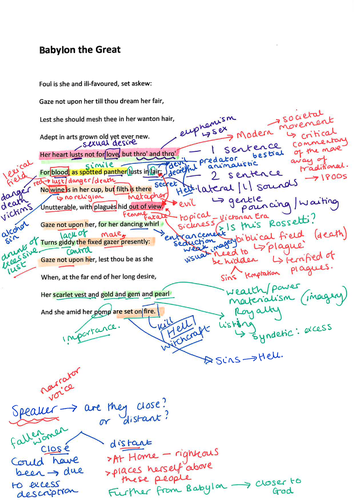 Babylon the Great
Foul is she and ill-favoured, set askew:
Gaze not upon her till thou dream her fair,
Lest she should mesh thee in her wanton hair,
Adept in arts grown old yet ever new.
Her heart lusts not for love, but thro' and thro'
For blood, as spotted panther lusts in lair;
No wine is in her cup, but filth is there
Unutterable, with plagues hid out of view.
Gaze not upon her, for her dancing whirl
Turns giddy the fixed gazer presently:
Gaze not upon her, lest thou be as she
When, at the far end of her long desire,
Her scarlet vest and gold and gem and pearl
And she amid her pomp are set on fire.
sexual desire
euphemism
→ sex
Modern
→ societal movement
→ critical commentary of the most way of traditional.
→ 1800s
lexical field
danger
death
victims
alcohol
sin
red
lust/danger/death
simile
devil
deceitful
predator
animalistic
bestial
1 sentence
2 sentence
secret
Hell
lateral (l) sounds
↳ gentle
pouncing/waiting
→ no religion
metaphor
female
fatale
evil
topical
sickness
→ victorian era
→ Is this Rossetti?
lack of
control
male
entrancement
seduction
weak male
usual imagery
biblical field (death)
need to
be hidden
→ 'plague'
→ terrified of plagues.
sins
temptation
excessive
lust
wealth/power
materialism (imagery)
Royalty
Listing
↳ Syndetic: excess
importance.
kill
Hell
witchcraft
Sins → Hell.
narrator
voice
Speaker → are they close?
or distant?
fallen
women
close
Could have
been → due
to excess
description
distant
> At Home → righteous
> places herself above
these people
Further from Babylon → closer to
God